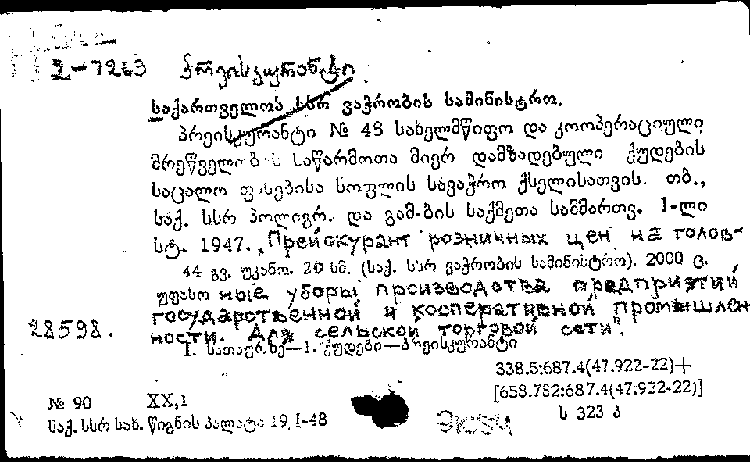 2-7263 პრეისკურანტი
საქართველოს სსრ ვაჭრობის სამინისტრო.
პრეისკურანტი № 43 სახელმწიფო და კოოპერაციული
მრეწველობის საწარმოთა მიერ დამზადებული ქუდების
საცალო ფასებისა სოფლის სავაჭრო ქსელისათვის. თბ.,
საქ. სსრ პოლიგრ. და გამ-ბის საქმეთა სამმართვ. I-ლი
სტ. 1947. „Прейскурант розничных цен на голов-
44 გვ. უკანო. 20 სმ. (საქ. სსრ ვაჭრობის სამინისტრო). 2000 ც.
უფასო ные уборы производства предприятий
государственной и кооперативной промышлен
28598. ности. Для сельской торговой сети".
I. სათაურზე—1. ქუდები—პრეისკურანტი
338.5:687.4(47.922-22)+
[658.782:687.4(47.922-22)]
№ 90 XX,1 ს 323 პ
საქ. სსრ სახ. წიგნის პალატა 19,I-48